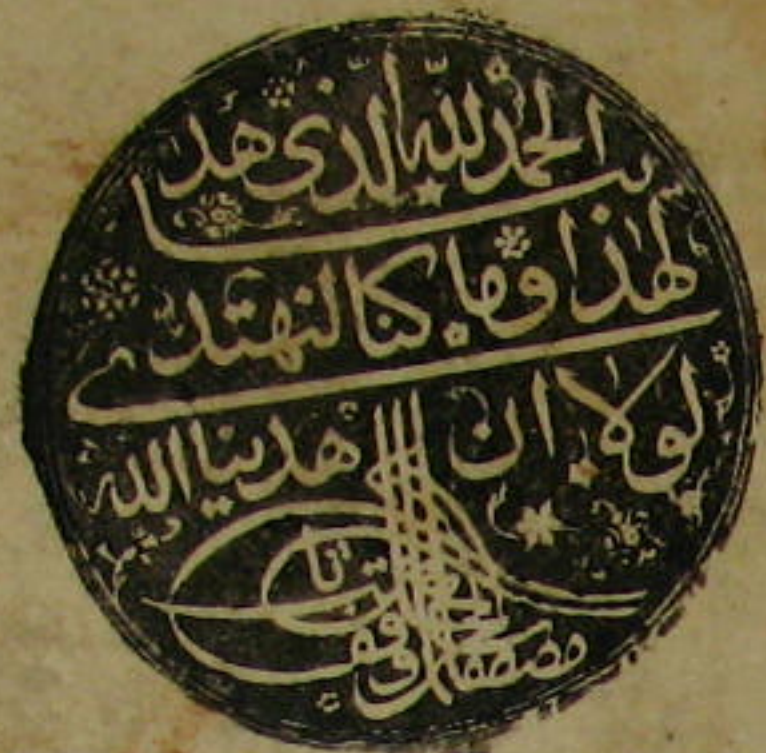 الحمد لله الذي هدىنا
لهذا وما كنا لنهتدي
لولا ان هدينا الله